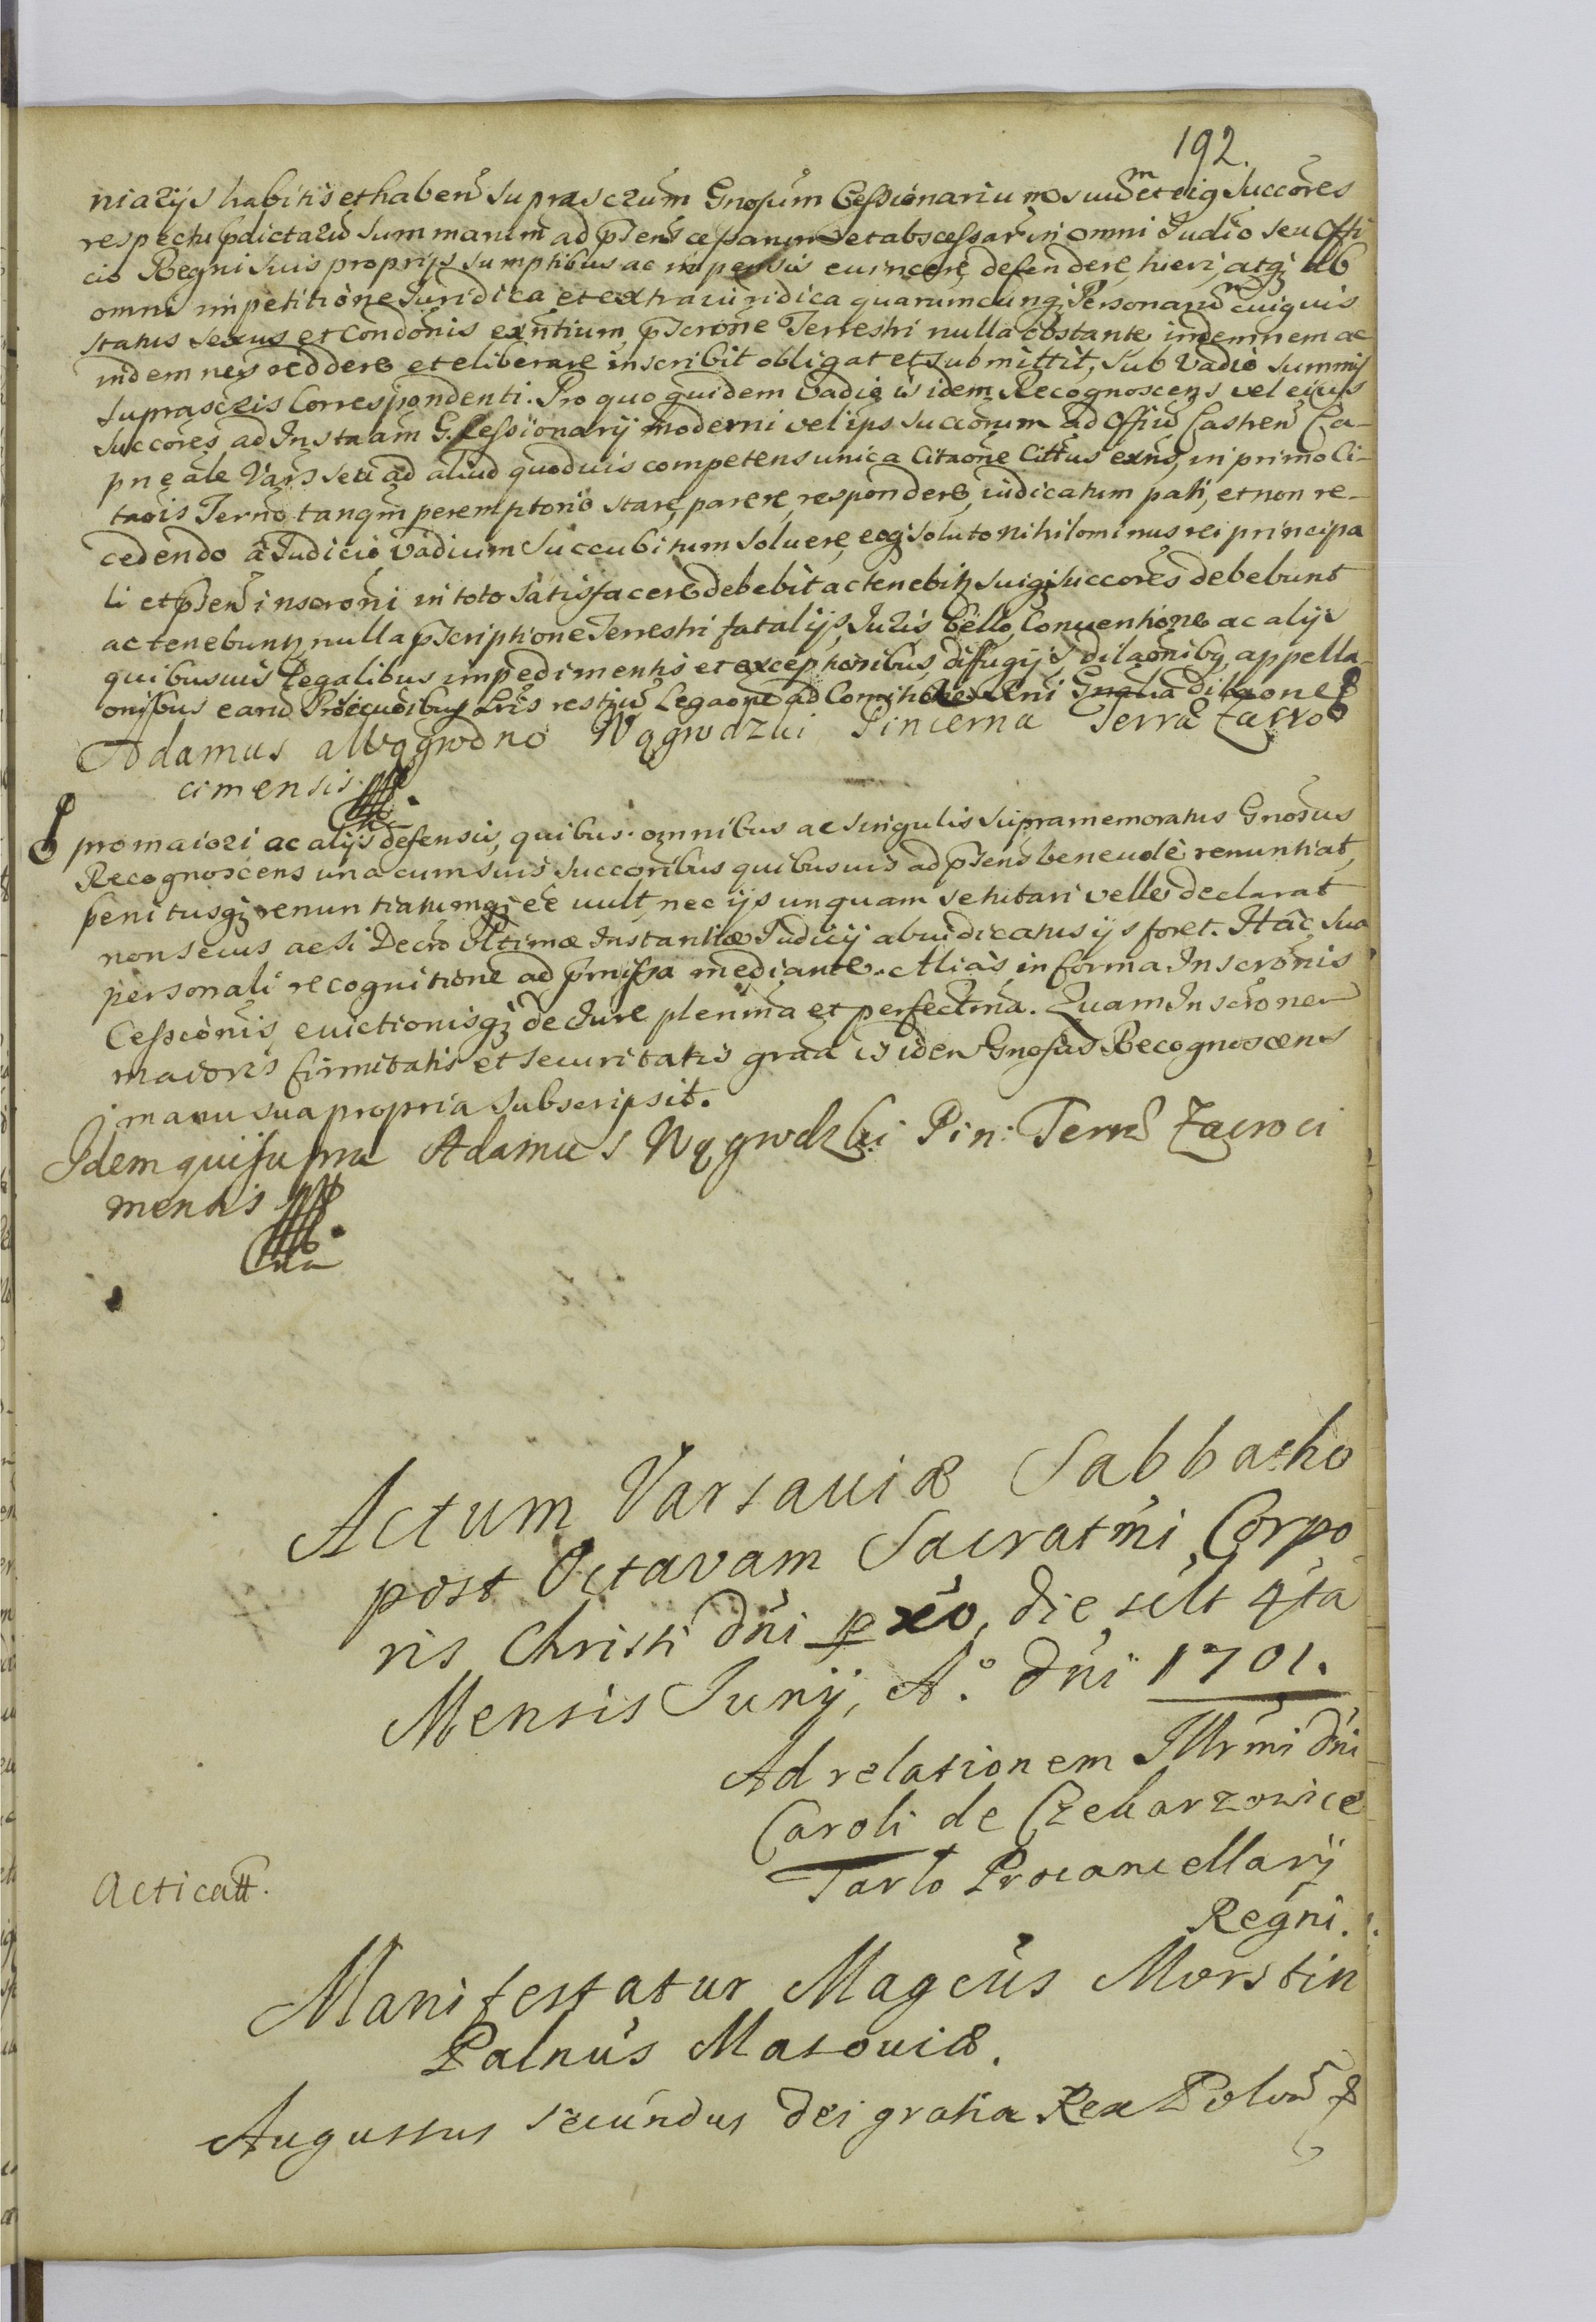 192.
niarijs habitis et haben̄ suprasczum Gnosum Cessionarium suum et eiq succōres
respectu p̄dictarū summarum ad p̄sens cessarum et abscessar̄ in omni Iudīo seu Offi
cio Regni suis proprijs sumptibus ac impensis euincere, defendere, tueri, atq₃ ab
omni impetitione Iuridica et extraiuridica quarumcunq₃ Personarum cuiquis
status sexus et condōnis exn̄tium, p̄scrōne Terrestri nulla obstante, indemnem ac
indemnes reddere et eliberare inscribit obligat et submittit, sub vadio summis
suprasczis Correspondenti. Pro quo quidem vadio is idem Recognoscens vel eius
succōres ad Instaam G. Cessionarij moderni vel ips. succorum ad Offiū Castren̄ Ca-
pneale Vars̄ seu ad aliud quoduis competens unica Citaōne Cittus exn̄s, in primo Ci-
taōis Termō tanqm̄ peremptorio stare, parere, respondere, iudicatum pati, et non re-
cedendo á Iudicio, vadium succubitum soluere, eoq₃ soluto nihilominus rei principa
li et p̄sen̄ inscrōni in toto satisfacere debebit ac tenebitz suiq₃ succōres debebunt
ac tenebuntz, nulla p̄scriptione Terrestri fatalijs, Iuris bello, Conuentione ac alijs
quibusuis Legalibus impedimentis et exceptionibus, difugijs, dilaōnibq, appella-
onibus earū Prosecuōibus
Adamus a Wągrodno Wągrodzki Pincerna Terrae Zakro
cimensis mpp
pro maiori ac alijs defensis, quibus omnibus ac singulis supramemoratus Gnosus
Recognoscens una cum suis succoribus quibusuis ad p̄sens beneuole renuntiat,
penitusq₃ renuntiatumq₃ ēē uult, nec ijs unquam se tutari velle declarat
non secus ac si Decrō Ultimæ Instantiæ Iudicij abiudicatus ijs foret. Hāc sua
personali recognitione ad p̄missa mediante. Aliàs in forma Inscrōnis
Cessionis, euictionisq₃ de Iure plenm̄a et perfectm̄a. Quam Inscrōnem
maioris firmitatis et securitatis graā is idem Gnosus Recognoscens
manu sua propria subscripsit.
Idem qui supra Adamus Wągrodzki Pin: Terrae Zakroci
mensis mpp
Actum Varsauiæ Sabbatho
post Octavam Sacratm̄i Corpo
ris Christi Dn̄i pxēo, die scilt 4ta
Mensis Junij, A.° Dn̄i 1701.
Ad relationem Illrm̄i Dn̄i
Caroli de Czekarzowice
Tarło Procancellarij
Regni.
Acticatt.
Manifestatur Magcūs Morstin
Palnūs Masouiæ.
Augustus secundus Dei gratia Rex Polon̄ &